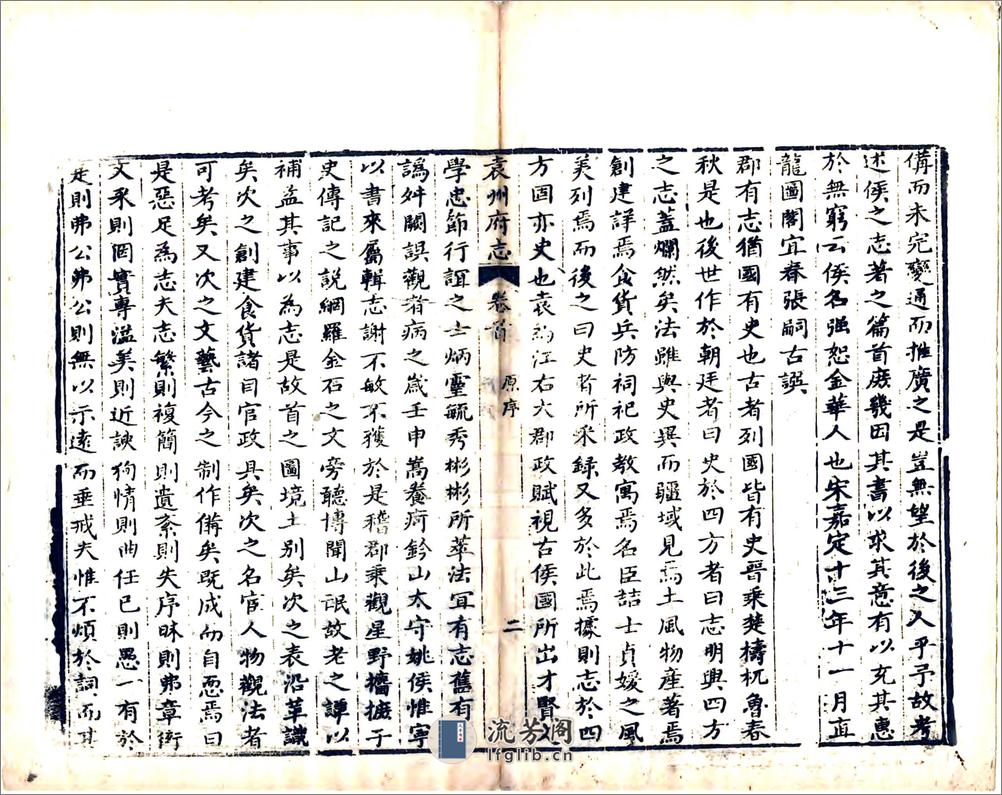 備而未完變通而推廣之是豈無望於後之人乎予故考
述侯之志著之篇首庶幾因其書以求其意有以充其惠
於無窮云侯名强恕金華人也宋嘉定十三年十一月直
龍圖閣宜春張嗣古譔
郡有志猶國有史也古者列國皆有史晉乗楚檮杌魯春
秋是也後世作於朝廷者曰史於四方者曰志明興四方
之志蓋爛然矣法雖與史異而疆域見焉土風物産著焉
創建詳焉食貨兵防祠祀政教寓焉名臣喆士貞媛之風
美列焉而後之曰史者所采録又多於此焉據則志於四
方固亦史也袁為江右大郡政賦視古侯國所出才賢
袁州府志 卷首 原序 二
學忠節行誼之士炳靈毓秀彬彬所萃法宜有志舊有
譌舛闕誤觀者病之歲壬申嵩養疴鈐山太守姚侯惟寧
以書來屬輯志謝不敏不獲於是稽郡乘觀星野攟摭子
史傳記之説網羅金石之文旁聽博聞山氓故老之譚以
補益其事以為志是故首之圖境土别矣次之表沿革識
矣次之創建食貨諸目官政具矣次之名宦人物觀法者
可考矣又次之文藝古今之制作備矣既成而自恧焉曰
是惡足為志夫志繁則複簡則遺紊則失序昧則弗章衒
文采則罔實專溢美則近諛狥情則曲任已則愚一有於
是則弗公弗公則無以示遠而垂戒夫惟不煩於詞而其
流芳阁
lfglib.cn